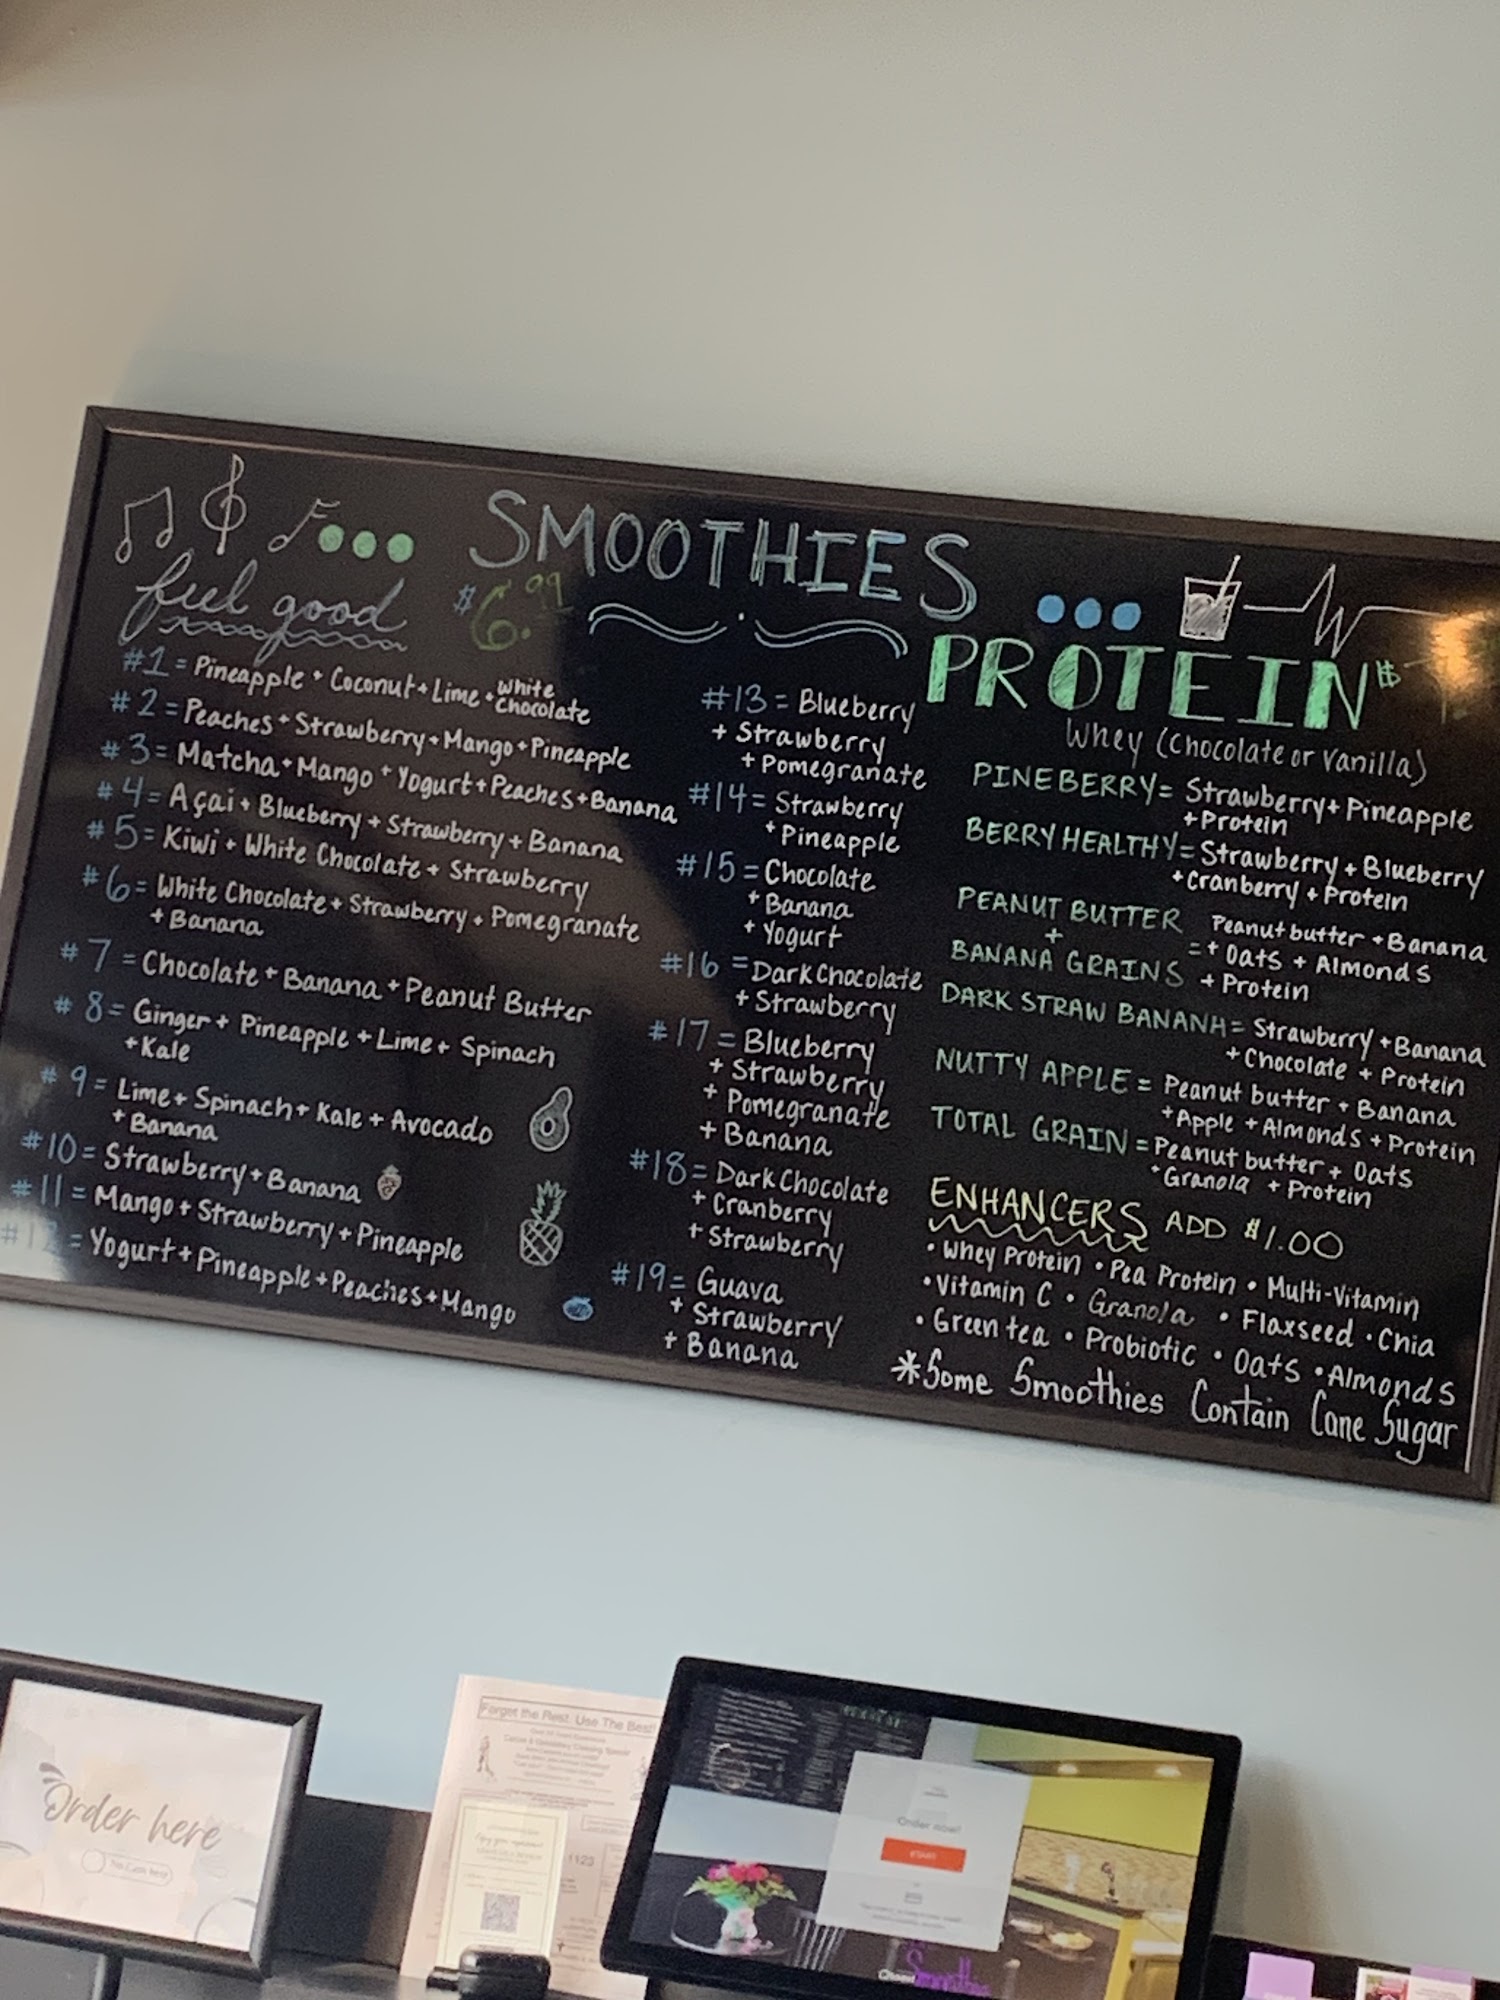 SMOOTHIES
feel good
$6.99
#1 = Pineapple + Coconut + Lime + White Chocolate
#2 = Peaches + Strawberry + Mango + Pineapple
#3 = Matcha + Mango + Yogurt + Peaches + Banana
#4 = Açai + Blueberry + Strawberry + Banana
#5 = Kiwi + White Chocolate + Strawberry
#6 = White Chocolate + Strawberry + Pomegranate
+ Banana
#7 = Chocolate + Banana + Peanut Butter
#8 = Ginger + Pineapple + Lime + Spinach
+ Kale
#9 = Lime + Spinach + Kale + Avocado
+ Banana
#10 = Strawberry + Banana
#11 = Mango + Strawberry + Pineapple
#12 = Yogurt + Pineapple + Peaches + Mango
#13 = Blueberry
+ Strawberry
+ Pomegranate
#14 = Strawberry
+ Pineapple
#15 = Chocolate
+ Banana
+ Yogurt
#16 = Dark Chocolate
+ Strawberry
#17 = Blueberry
+ Strawberry
+ Pomegranate
+ Banana
#18 = Dark Chocolate
+ Cranberry
+ Strawberry
#19 = Guava
+ Strawberry
+ Banana
PROTEIN $
Whey (Chocolate or Vanilla)
PINEBERRY = Strawberry + Pineapple
+ Protein
BERRY HEALTHY = Strawberry + Blueberry
+ Cranberry + Protein
PEANUT BUTTER + BANANA GRAINS = Peanut butter + Banana
+ Oats + Almonds
+ Protein
DARK STRAW BANANH = Strawberry + Banana
+ Chocolate + Protein
NUTTY APPLE = Peanut butter + Banana
+ Apple + Almonds + Protein
TOTAL GRAIN = Peanut butter + Oats
+ Granola + Protein
ENHANCERS ADD $1.00
• Whey Protein • Pea Protein • Multi-Vitamin
• Vitamin C • Granola • Flaxseed • Chia
• Green tea • Probiotic • Oats • Almonds
*Some Smoothies Contain Cane Sugar
Order here
No Cash here
Forget the Rest. Use The Best!
1123
Order now!
START
Smoothies